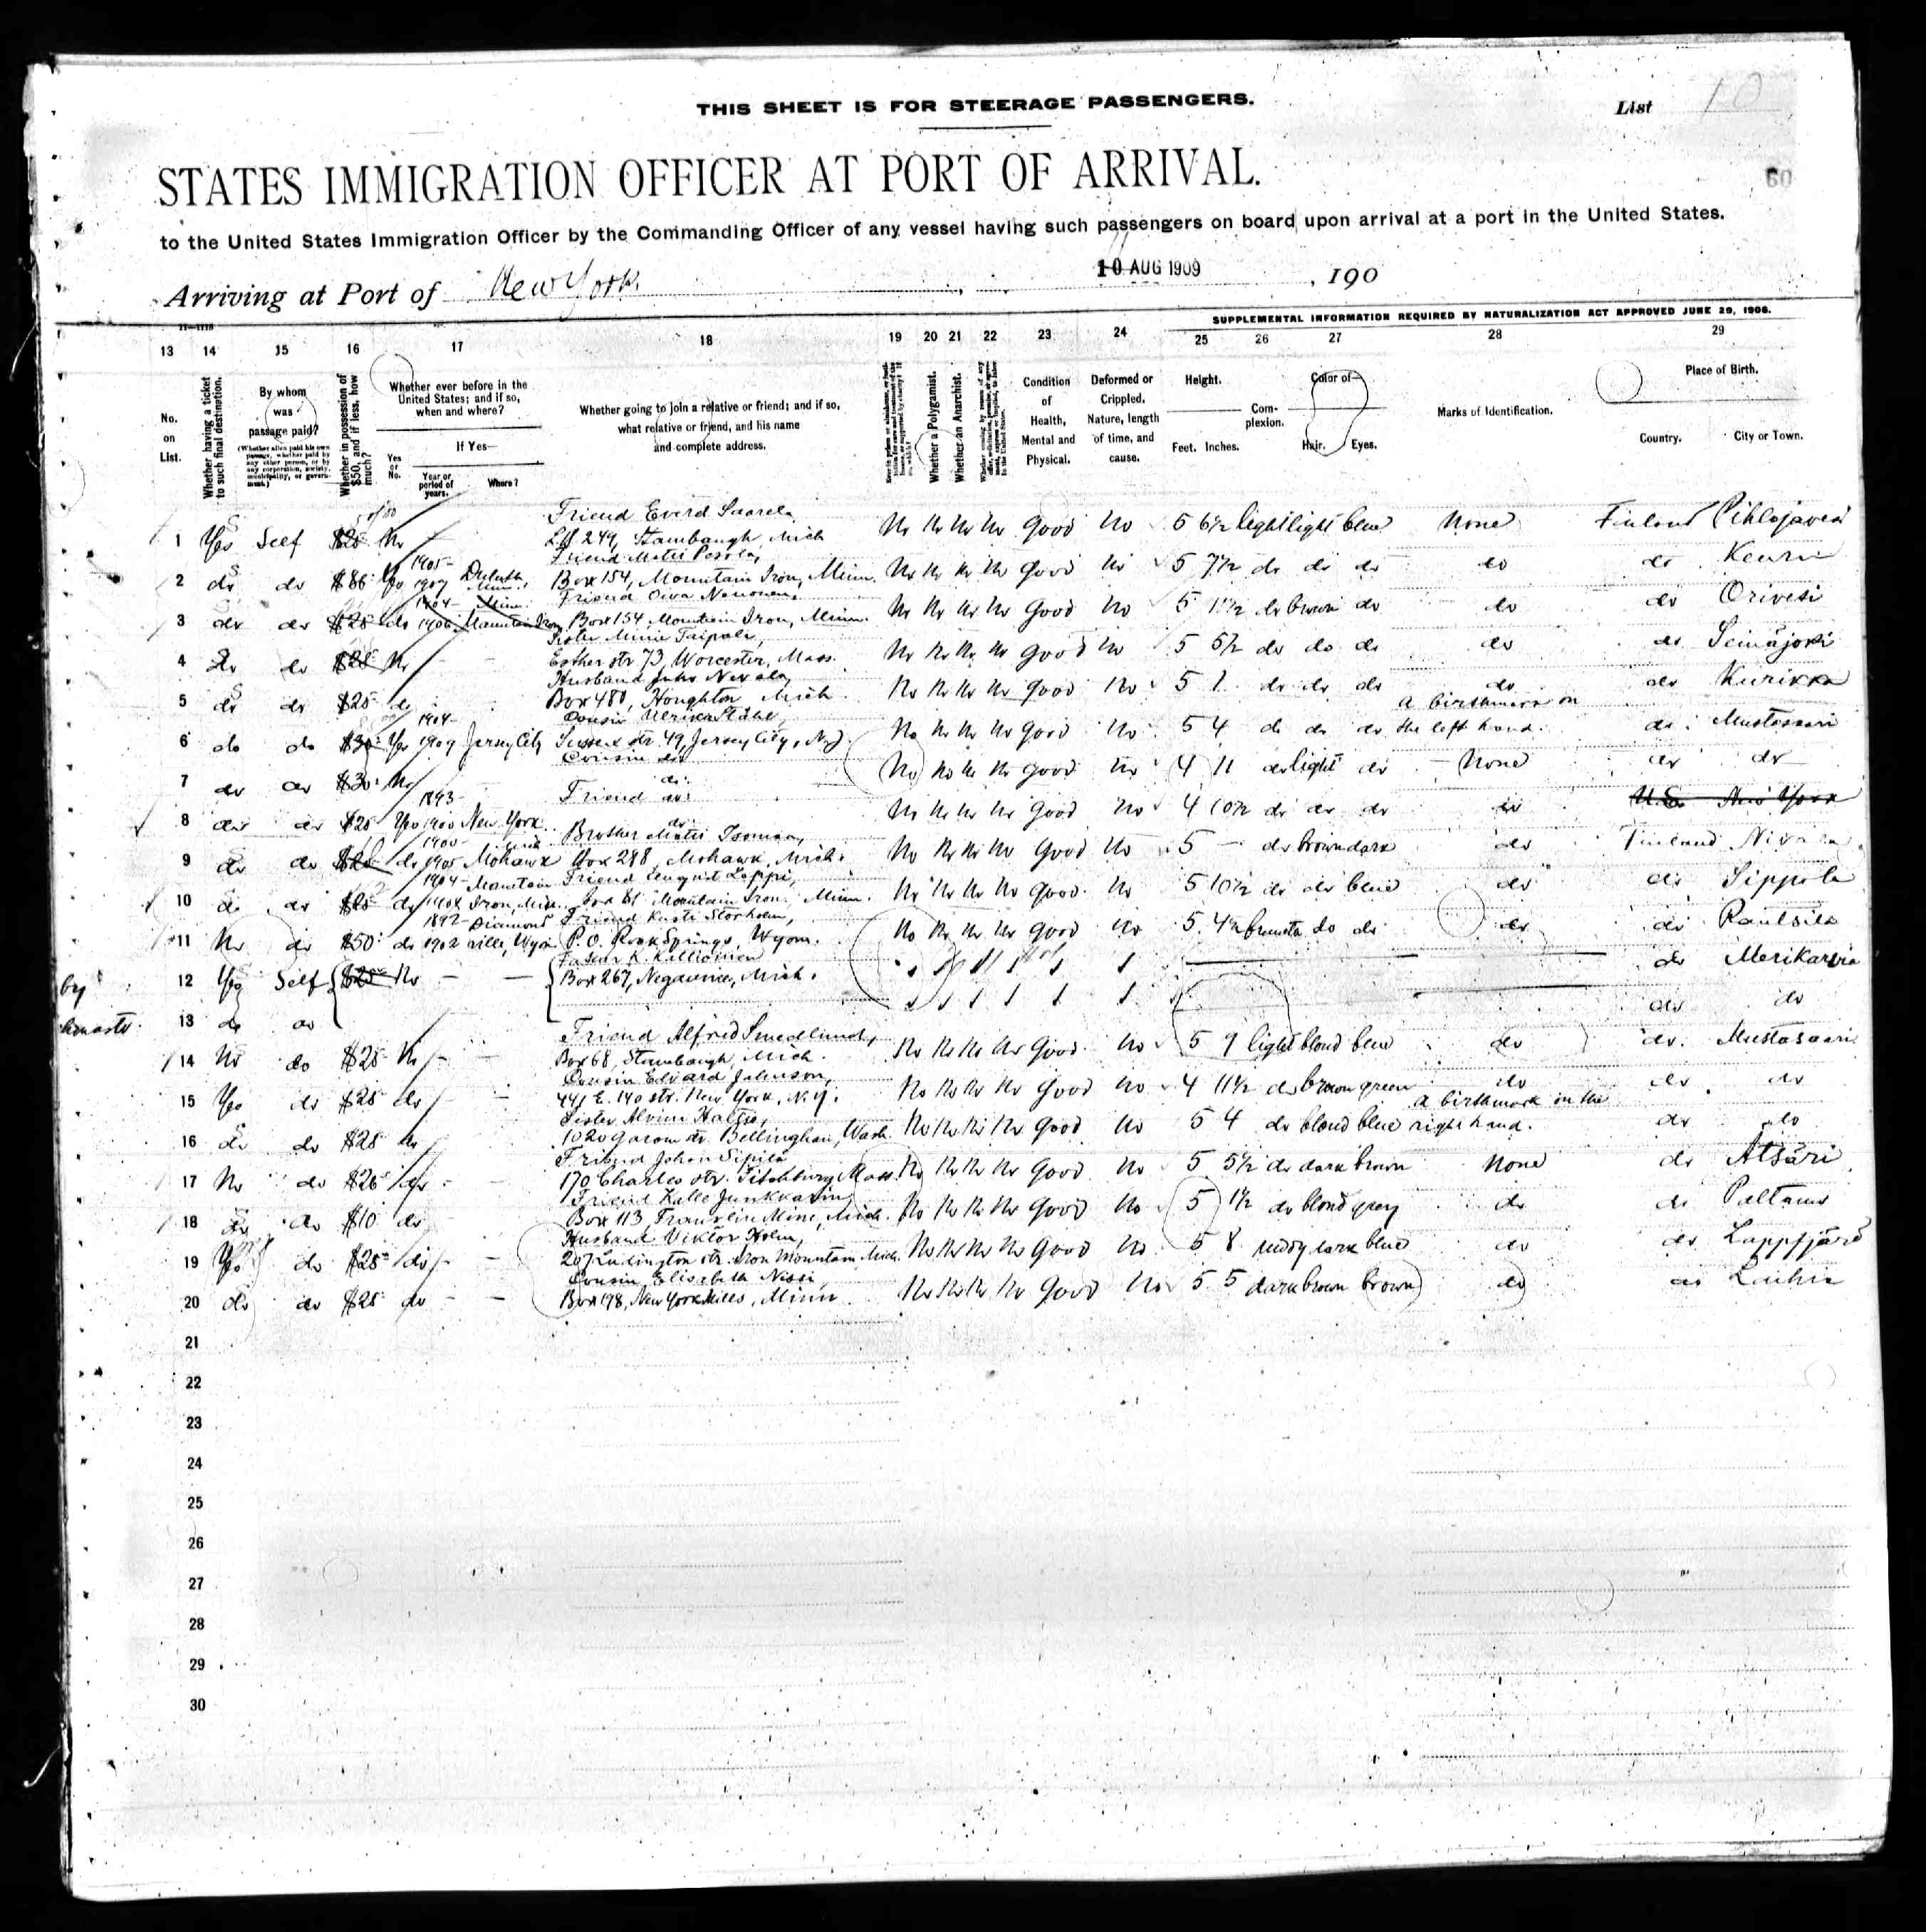 THIS SHEET IS FOR STEERAGE PASSENGERS.
List 10
60
STATES IMMIGRATION OFFICER AT PORT OF ARRIVAL.
to the United States Immigration Officer by the Commanding Officer of any vessel having such passengers on board upon arrival at a port in the United States.
Arriving at Port of New York, 10 AUG 1909, 190
SUPPLEMENTAL INFORMATION REQUIRED BY NATURALIZATION ACT APPROVED JUNE 29, 1906.
13 14 15 16 17 18 19 20 21 22 23 24 25 26 27 28 29
No. on List.
Whether having a ticket to such final destination.
By whom was passage paid?
(Whether alien paid his own passage, whether paid by any other person, or by any corporation, society, municipality, or government.)
Whether in possession of $50, and if less, how much?
Whether ever before in the United States; and if so, when and where?
Yes or No.
If Yes—
Year or period of years.
Where?
Whether going to join a relative or friend; and if so, what relative or friend, and his name and complete address.
Whether a Polygamist.
Whether an Anarchist.
Condition of Health, Mental and Physical.
Deformed or Crippled. Nature, length of time, and cause.
Height.
Feet. Inches.
Complexion.
Color of—
Hair. Eyes.
Marks of Identification.
Place of Birth.
Country. City or Town.
Friend Everd Saarela
1 Yes Self $25 No Stambaugh, Mich No No No No Good No 5 6½ light light blue None Finland Pihlajavesi
1905-
2 do do Yes 1907 Duluth, Minn. Box 154, Mountain Iron, Minn. No No No No Good No 5 7½ do do do do do Keuru
1904- Minn. Friend Oiva Nenonen,
3 do do $25 do 1906 Mountain Iron Box 154, Mountain Iron, Minn. No No No No Good No 5 do brown do do do Orivesi
Sister Minni Taipale,
4 do do $25 No Esther str 73, Worcester, Mass. No No No No Good No 5 5½ do do do do do Seinäjoki
Husband Juho Nevala,
5 do do $25 do Box 480, Houghton Mich. No No No No Good No 5 1 do do do do do Kurikka
1904- Cousin Ståhl, a birthmark on
6 do do $30 Yes 1909 Jersey City Sussex str 49, Jersey City, N.J. No No No No Good No 5 4 do do do the left hand. do Mustasaari
Cousin do
7 do do $30 No do No No No No Good No 4 11 do light do None do do
1893- Friend do
8 do do $25 Yes 1900 New York do No No No No Good No 4 10½ do do do do U.S. New York
1900- Mich Brother Matti Isomaa,
9 do do $25 do 1905 Mohawk Box 288, Mohawk, Mich. No No No No Good No 5 - do brown dark do Finland Nivala
1904- Mountain Friend Leppi,
10 do do $25 do Iron, Minn. Mountain Iron, Minn. No No No No Good No 5 10½ do do blue do do Sippola
1892- Diamond Friend Kusti Storholm,
11 No do $50 do 1902 ville, Wyom. P.O. Rock Springs, Wyom. No No No No Good No 5 4½ do do do do
Father K. Kallioinen
12 Yes Self $25 No - - Box 267, Negaunee, Mich. do Merikarvia
by
13 do do do do
Friend Alfred Smedlund,
14 No do $25 No - - Box 68, Stambaugh, Mich. No No No No Good No 5 9 light blond blue do do Mustasaari
Cousin Edvard Johnson,
15 Yes do $25 do 441 E. 140 str. New York, N.Y. No No No No Good No 4 11½ do brown green do do do
Sister Alvina a birthmark on the
16 do do $25 No Bellingham, Wash No No No No Good No 5 4 do blond blue right hand. do do
Friend Johan Sipilä
17 No do $25 do - 170 Charles str. Fitchburg Mass No No No No Good No 5 5½ do dark brown None do Atsäri
Friend Kalle Junkkarin,
18 do do $10 do Box 113, Franklin Mine, Mich. No No No No Good No 5 1½ do blond grey do do Paltamo
Husband Viktor Holm,
19 Yes do $25 do - - 207 Ludington str. Iron Mountain Mich. No No No No Good No 5 8 ruddy dark blue do do Lappfjärd
Cousin Elisabeth Nissi,
20 do do $25 do - - Box 198, New York Mills, Minn. No No No No Good No 5 5 dark brown brown do do Laihia
21
22
23
24
25
26
27
28
29
30